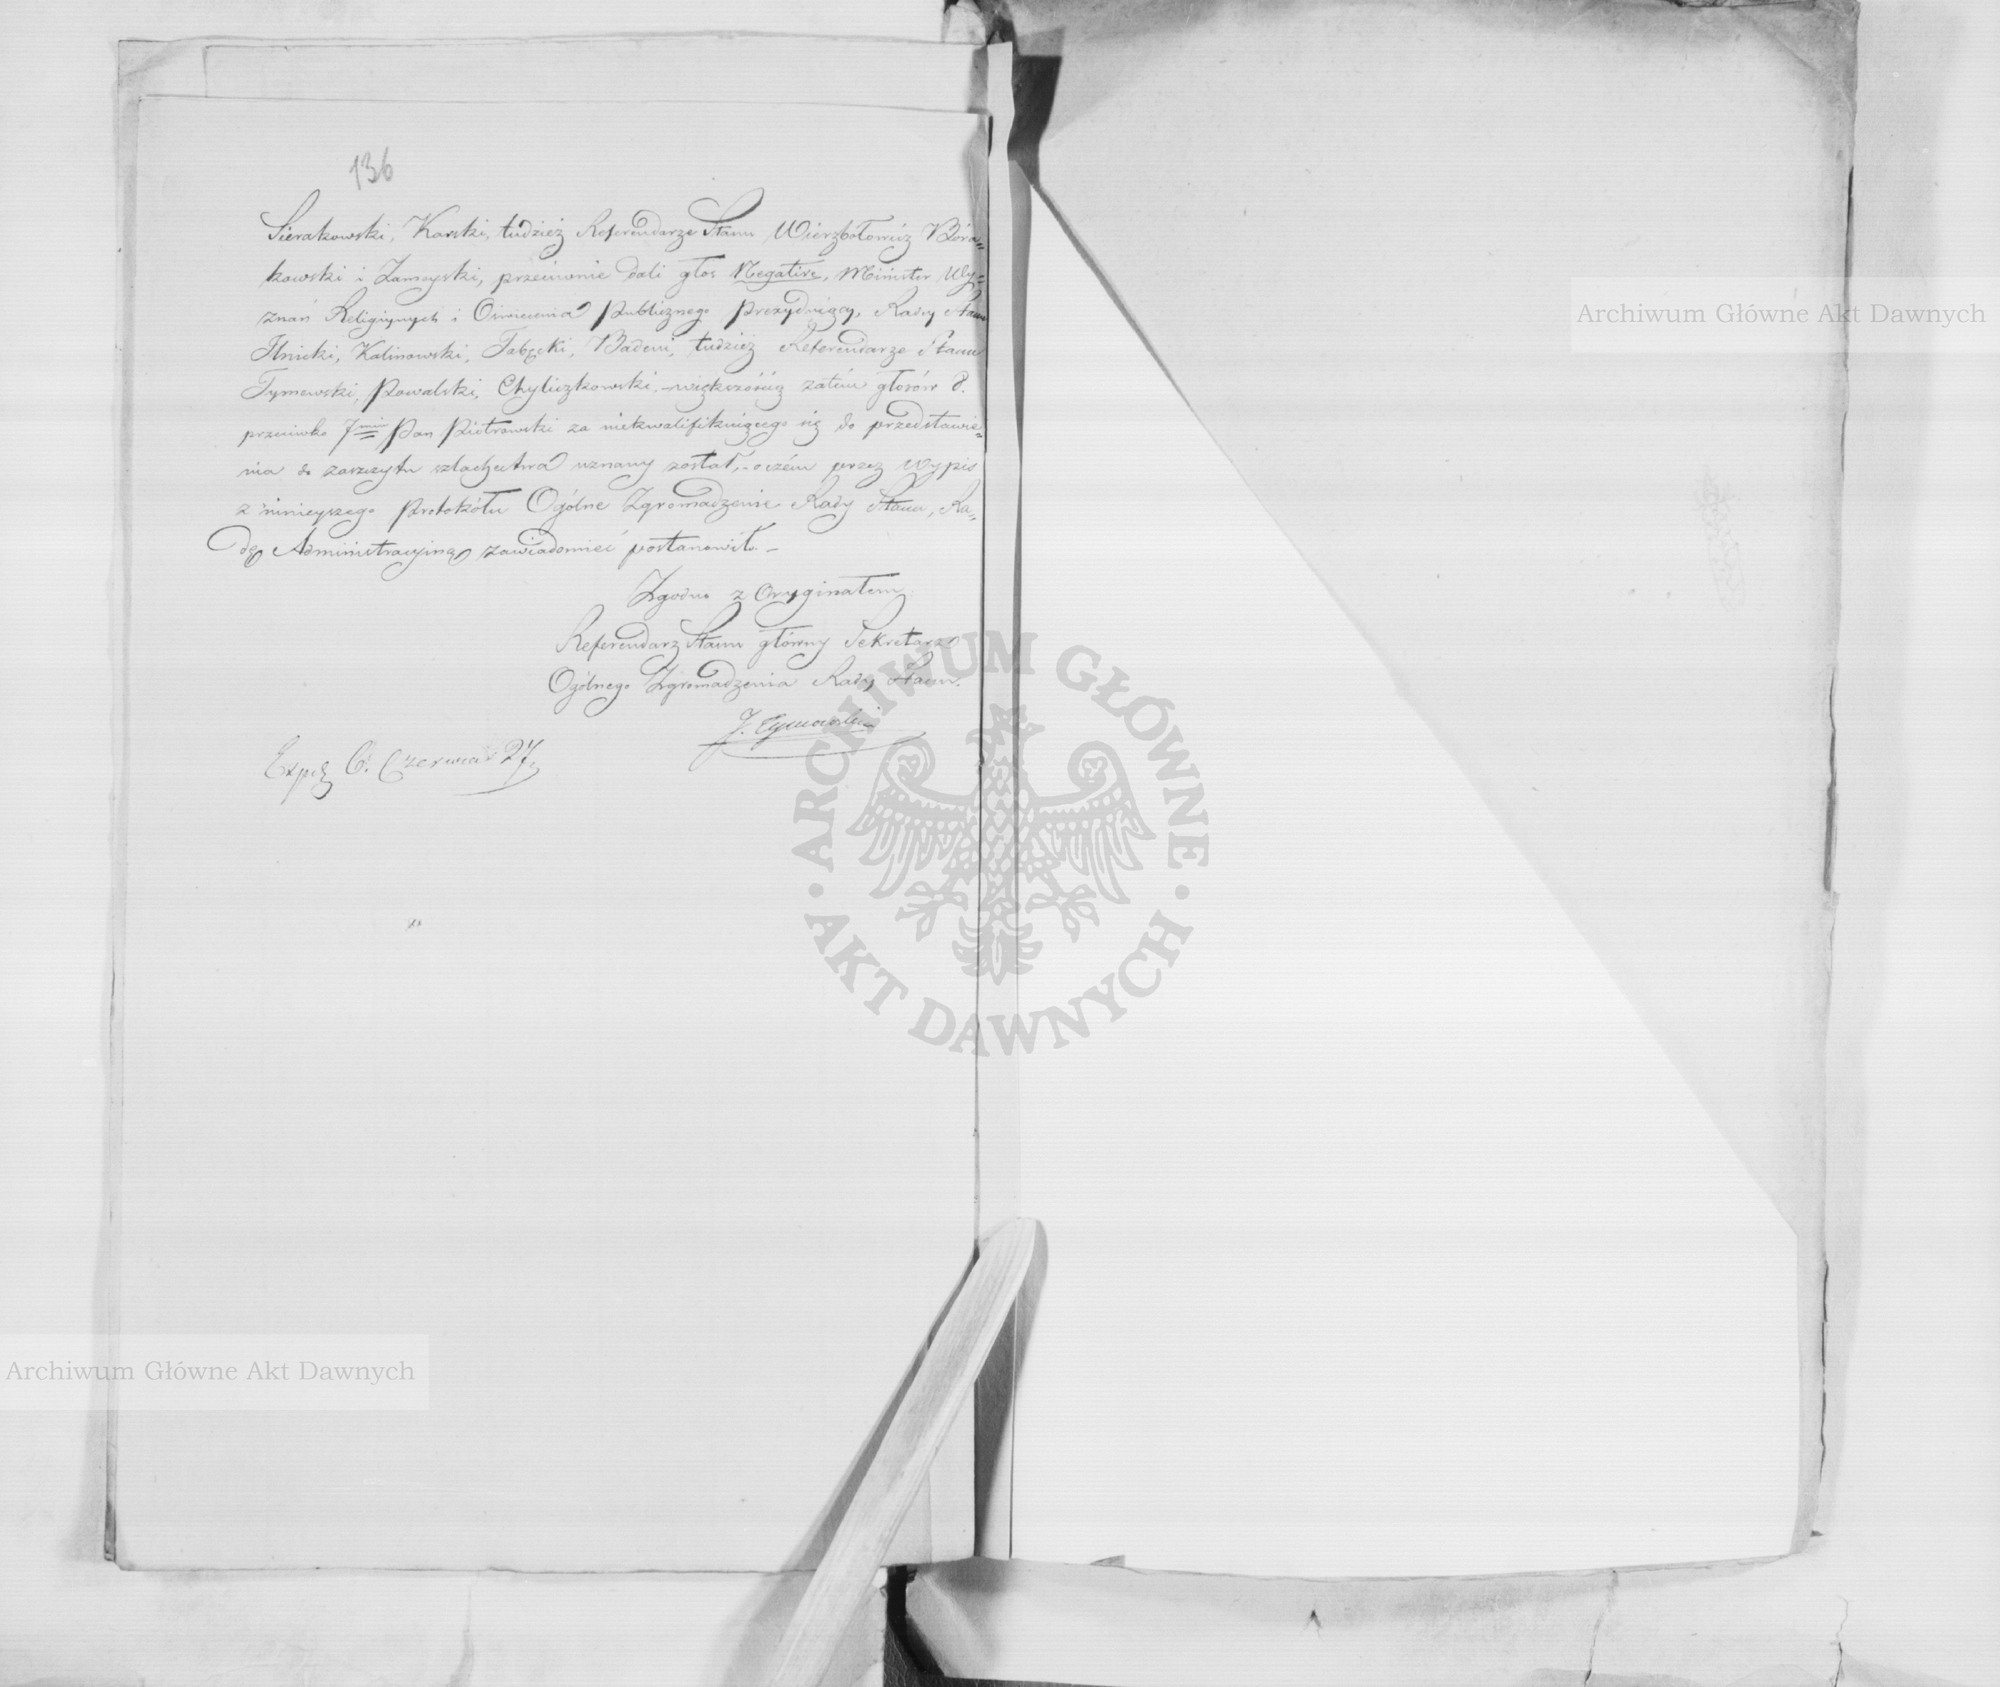 136
Sierakowski, Karski, tudzież Referendarze Stanu Wierzbołowicz Boro=
kowski i Zamoyski, przeciwnie dali głos Negative, Minister Wy=
znań Religijnych i Oświecenia Publicznego Prezydujący, Radcy Stanu
Ilnicki, Kalinowski, Tabęcki, Badeni, tudzież Referendarze Stanu
Tymowski, Kowalski, Chyliczkowski. – większością zatém głosów 8.
przeciwko 7miu Pan Piotrowski za niekwalifikuiącego się do przedstawie=
nia do zaszczytu szlachectwa uznany został, – o czém przez Wypis
z ninieyszego Protokółu Ogólne Zgromadzenie Rady Stanu, Ra=
dę Administracyiną zawiadomić postanowiło. –
Zgodno z Oryginałem:
Referendarz Stanu główny Sekretarz
Ogólnego Zgromadzenia Rady Stanu.
J. Tymowski
Exped 6. Czerwca 27.
Archiwum Główne Akt Dawnych
ARCHIWUM GŁÓWNE
AKT DAWNYCH
Archiwum Główne Akt Dawnych